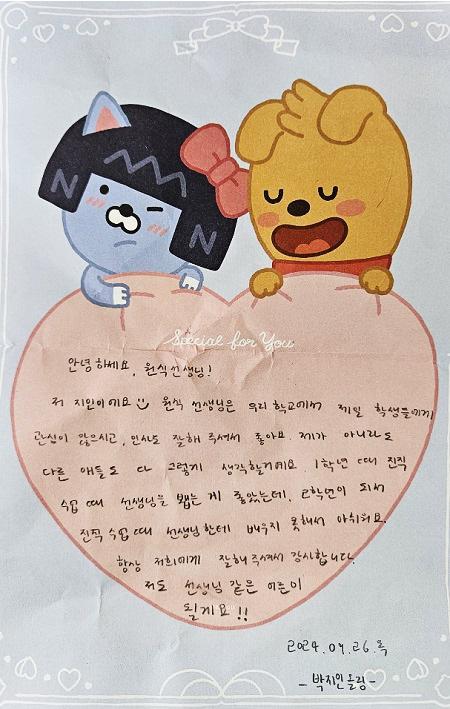 Special for You
안녕하세요, 원식선생님!
저 지인이에요 원식 선생님은 우리학교에서 제일 학생들에게
관심이 많으시고, 인사도 잘해 주셔서 좋아요. 제가 아니라도
다른 애들도 다 그렇게 생각할거에요. 1학년 때 진직
수업 때 선생님을 뵙는 게 좋았는데, 2학년이 되서
진직 수업 때 선생님한테 배우지 못해서 아쉬워요.
항상 저희에게 잘해주셔서 감사합니다.
저도 선생님 같은 어른이
될게요!!
2024.04.26.목
-박지인올림-